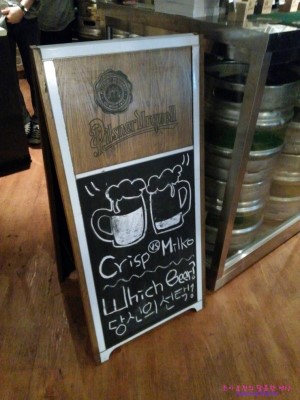 Pilsner Urquell
Crisp vs Milko
Which Beer?
당신의 선택?